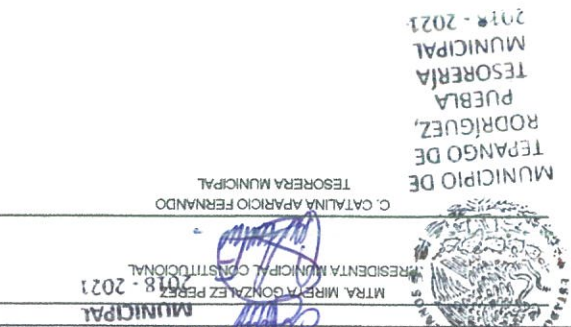 MUNICIPAL
2018 - 2021
MTRA. MIREYA GONZALEZ PEREZ
PRESIDENTA MUNICIPAL CONSTITUCIONAL
C. CATALINA APARICIO FERNANDO
TESORERA MUNICIPAL
MUNICIPIO DE
TEPANGO DE
RODRÍGUEZ,
PUEBLA
TESORERÍA
MUNICIPAL
2018 - 2021